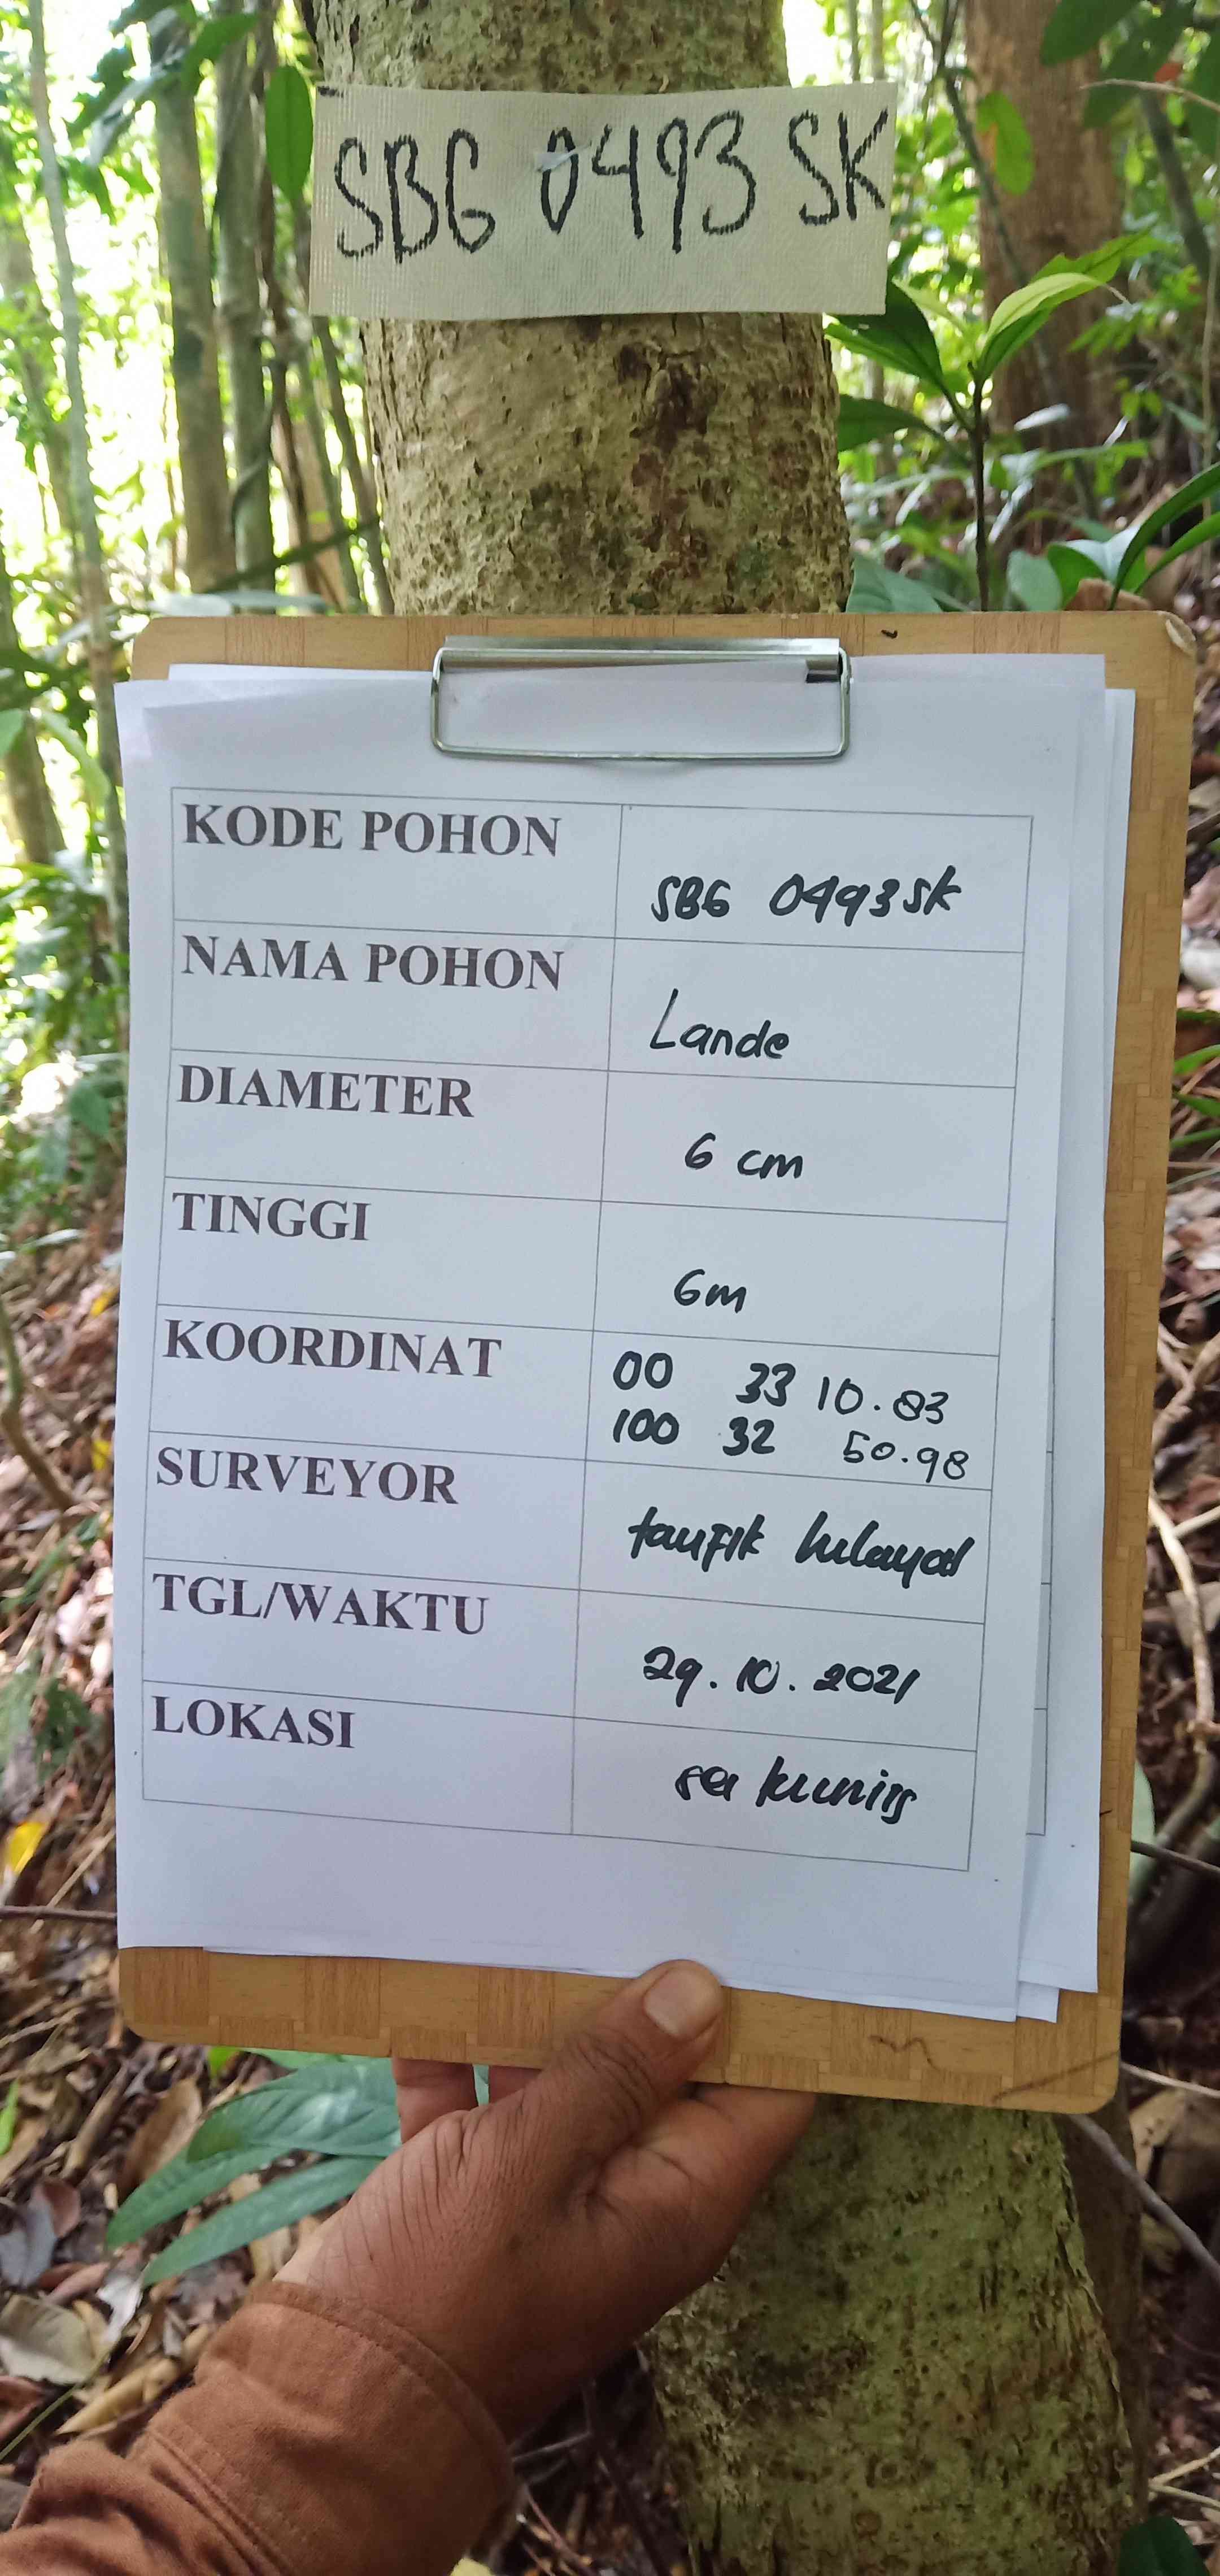 SBG 0493 SK
KODE POHON
SBG 0493 SK
NAMA POHON
Lande
DIAMETER
6 cm
TINGGI
6m
KOORDINAT
00 33 10.83
100 32 50.98
SURVEYOR
taufik hidayat
TGL/WAKTU
29.10.2021
LOKASI
sei kuning